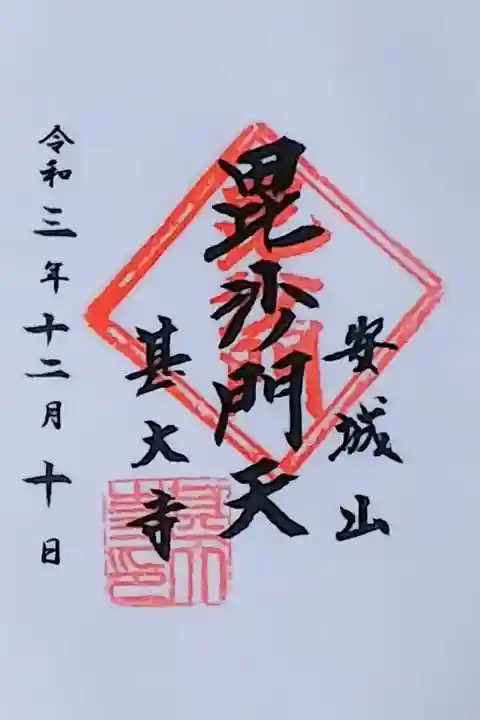 安城山
毘沙門天
甚大寺
令和三年十二月十日